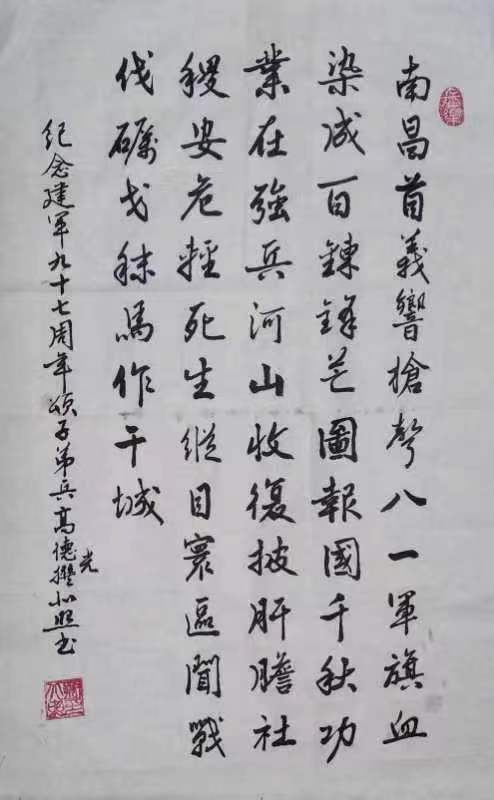 南昌首義響槍聲八一軍旗血
染成百鍊鋒芒圖報國千秋功
業在強兵河山收復披肝膽社
稷安危輕死生縱目寰區聞戰
伐礪戈秣馬作干城
紀念建軍九十七周年頌子弟兵高德光撰照书